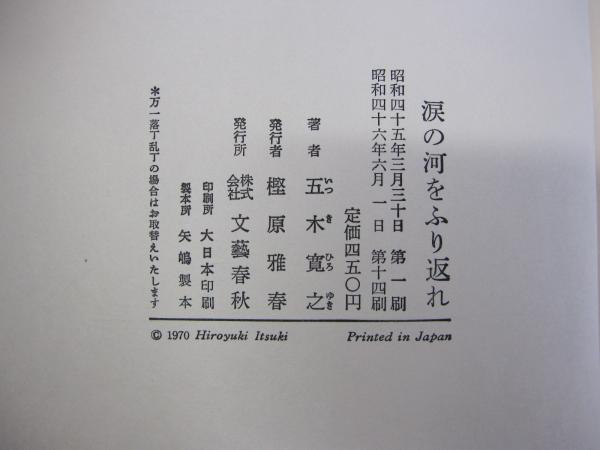 涙の河をふり返れ
昭和四十五年三月三十日　第一刷
昭和四十六年六月　一日　第十四刷
定価四五〇円
著者　五木寛之
いつ　き　ひろ　ゆき
発行者　樫原雅春
発行所　株式会社　文藝春秋
印刷所　大日本印刷
製本所　矢嶋製本
＊万一落丁乱丁の場合はお取替えいたします
© 1970 Hiroyuki Itsuki　Printed in Japan